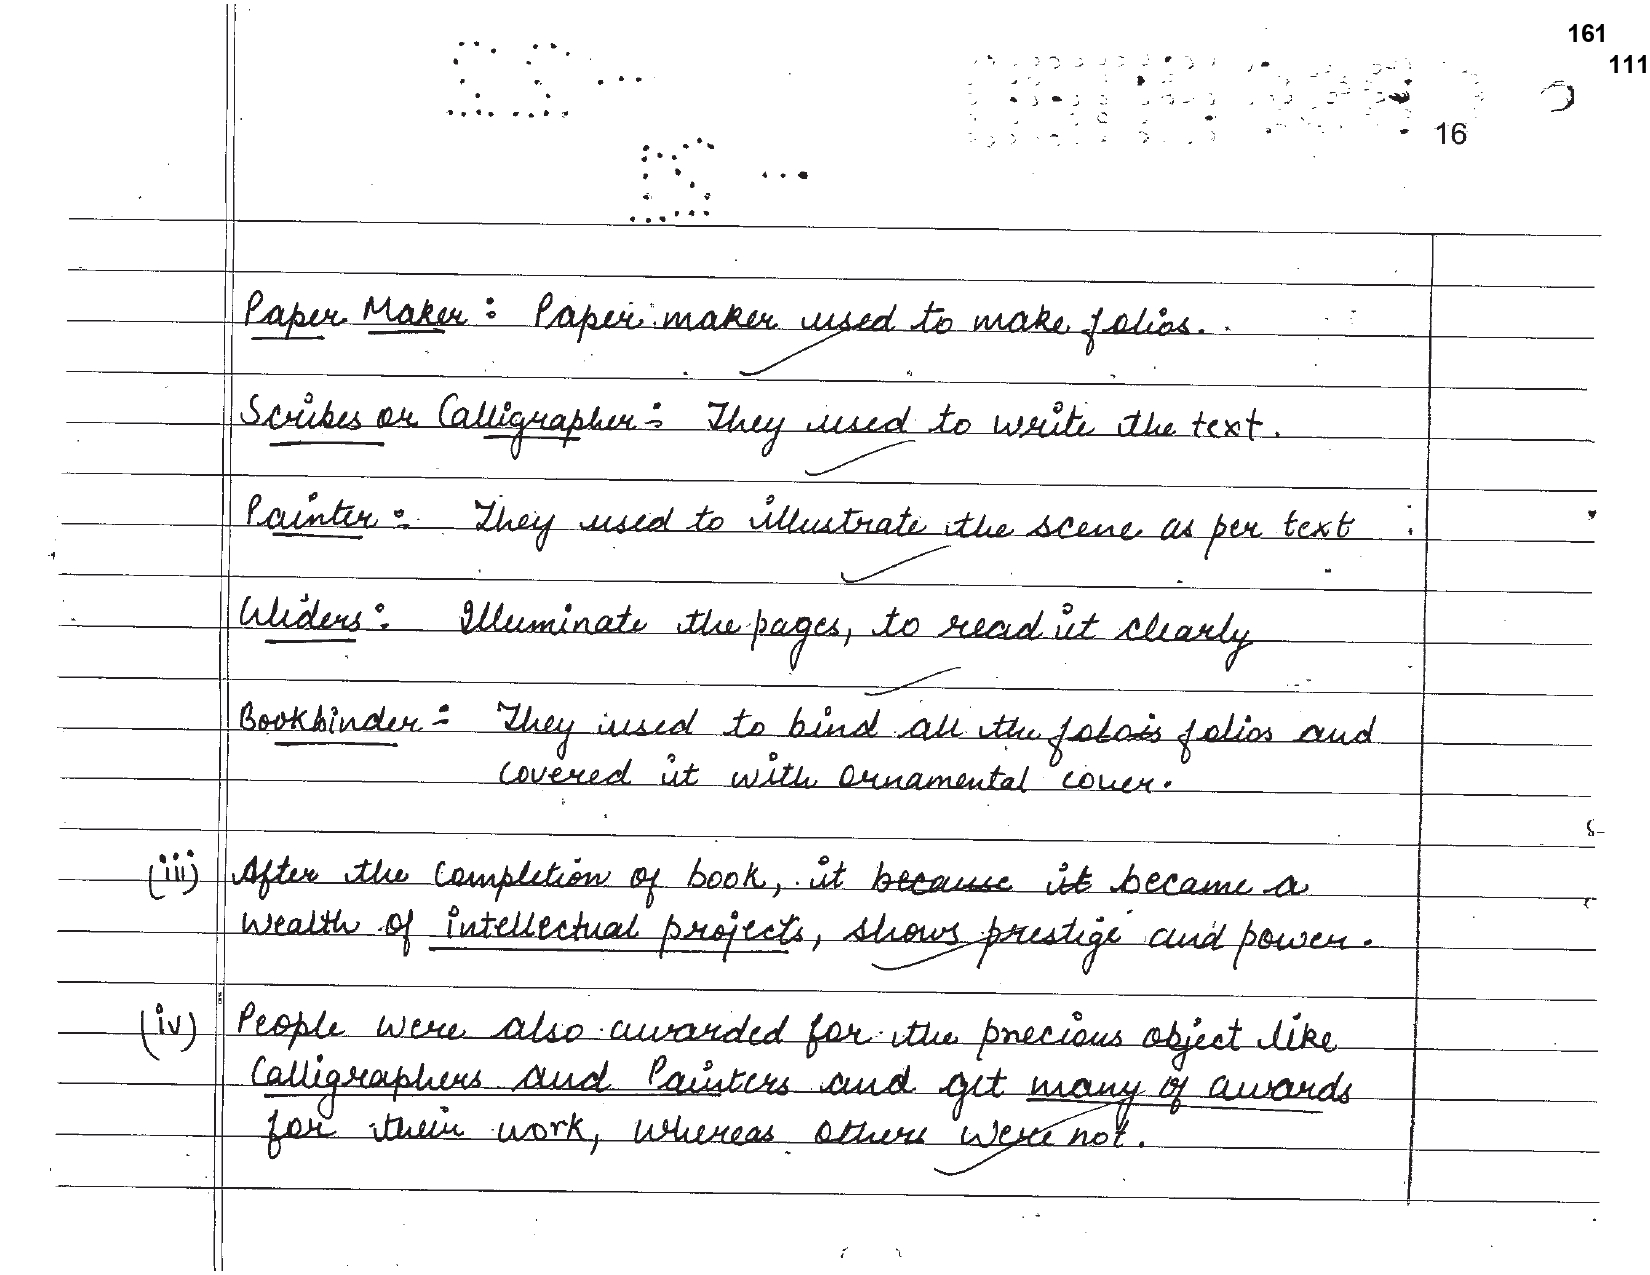 161
111
16
Paper Maker: Paper maker used to make folios.
Scribes or Calligrapher:- They used to write the text.
Painter:- They used to illustrate the scene as per text
Gliders: Illuminate the pages, to read it clearly
Bookbinder:- They used to bind all the folois folios and
covered it with ornamental cover.
(iii) After the completion of book, it because it became a
wealth of intellectual projects, shows prestige and power.
(iv) People were also awarded for the precious object like
Calligraphers and Painters and get many of awards
for their work, whereas others were not.